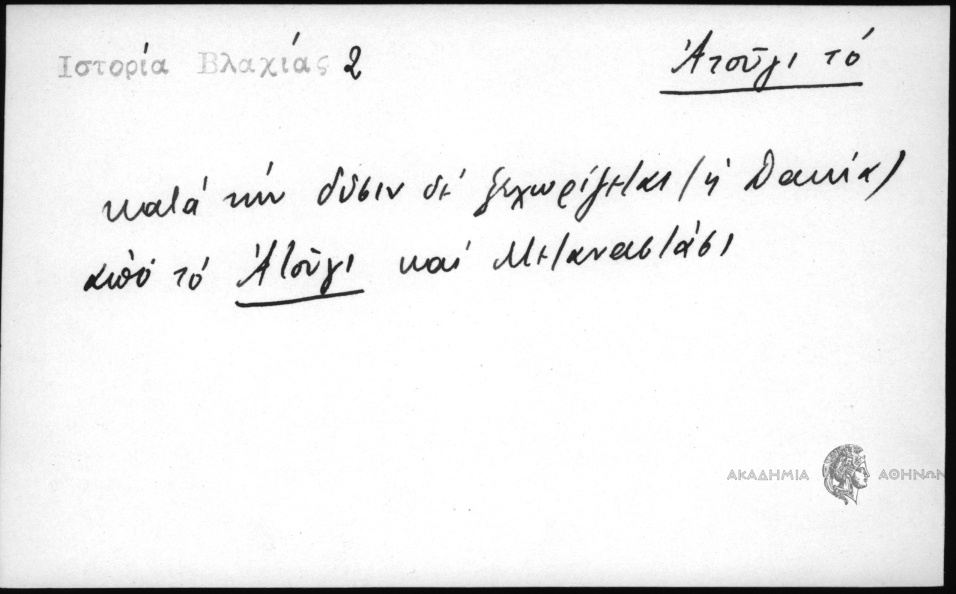 Ιστορία Βλαχίας 2
Ἀτοῦγι τό
κατά τήν δύσιν δέ ξεχωρίζεται (ἡ Δακία)
ἀπό τό Ἀτοῦγι καί Μεταναστάσι
ΑΚΑΔΗΜΙΑ ΑΘΗΝΩΝ